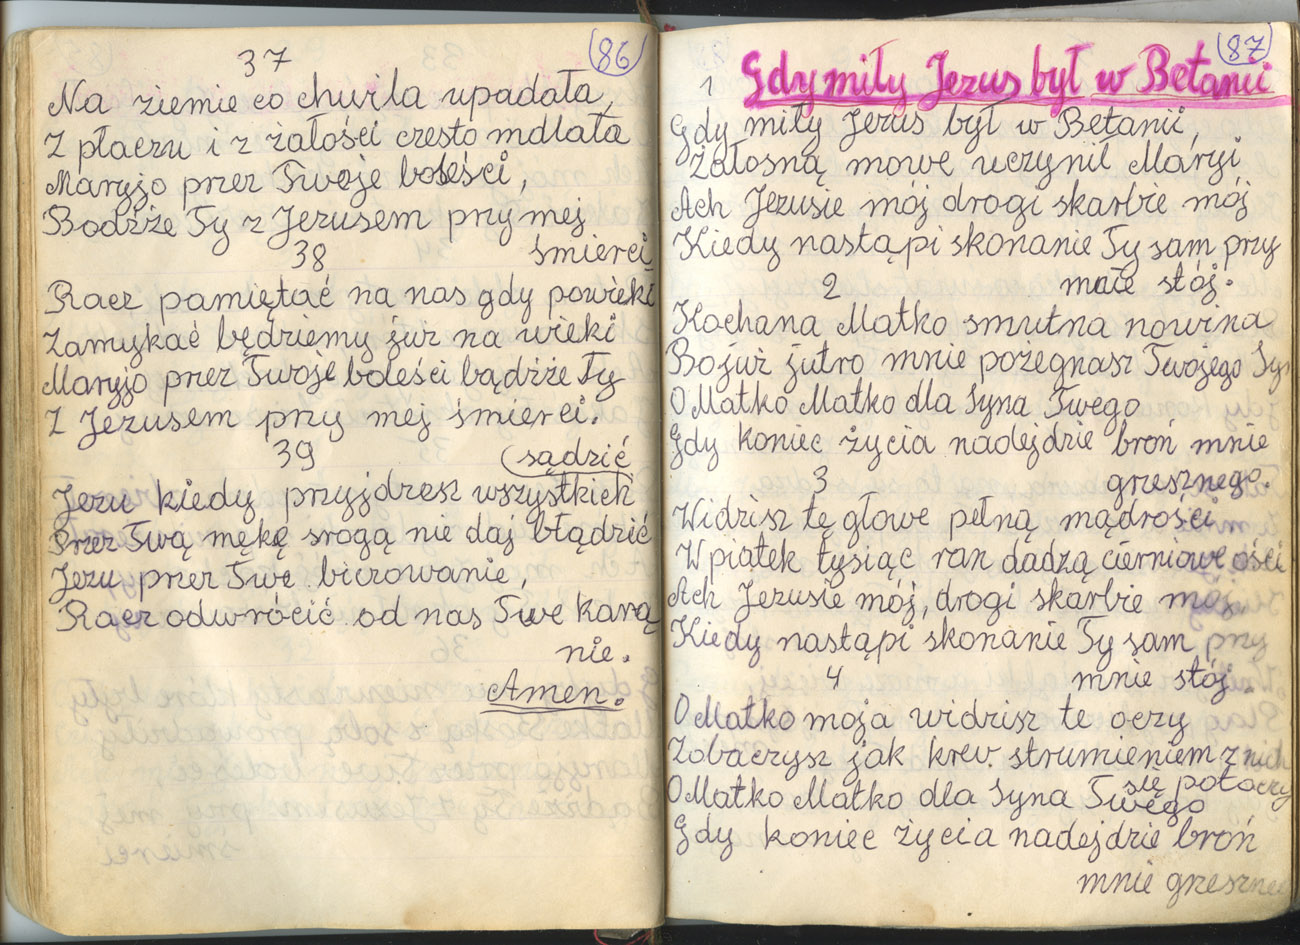 86
37
Na ziemie co chwila upadała,
Z płaczu i z żałości czesto mdlała
Maryjo przez Twoje boleści,
Bądźże Ty z Jezusem przy mej
śmierci.
38
Racz pamiętać na nas gdy powieki
Zamykać będziemy już na wieki
Maryjo przez Twoje boleści bądźże Ty
Z Jezusem przy mej śmierci.
39
sądzić
Jezu kiedy przyjdziesz wszystkich
Przez Twą mękę srogą nie daj błądzić
Jezu przez Twe biczowanie,
Racz odwrócić od nas Twe kara
nie.
Amen.
87
Gdy miły Jezus był w Betanii
1
Gdy miły Jezus był w Betanii,
Żałosną mowe uczynił Maryi,
Ach Jezusie mój drogi skarbie mój
Kiedy nastąpi skonanie Ty sam przy
mnie stój.
2
Kochana Matko smutna nowina
Bo już jutro mnie pożegnasz Twojego Sy
O Matko Matko dla Syna Twego
Gdy koniec życia nadejdzie broń mnie
grzesznego.
3
Widzisz tę głowe pełną mądrości
W piątek tysiąc ran dadzą cierniowe ości
Ach Jezusie mój, drogi skarbie mój,
Kiedy nastąpi skonanie Ty sam przy
mnie stój.
4
O Matko moja widzisz te oczy
Zobaczysz jak krew strumieniem z nich
się potoczy
O Matko Matko dla Syna Twego
Gdy koniec życia nadejdzie broń
mnie grzeszne